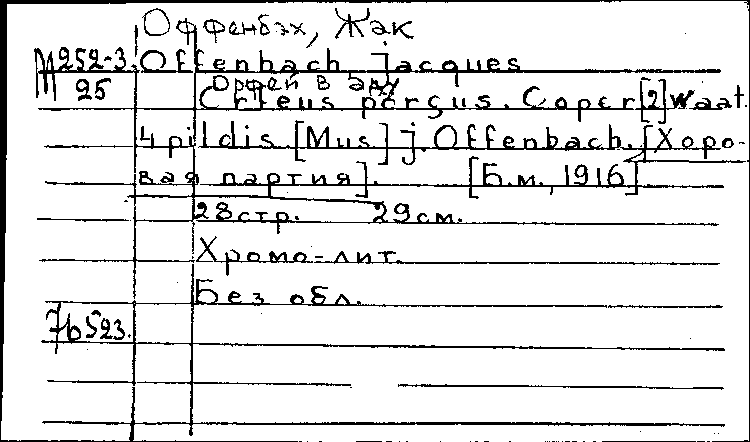 Оффенбах, Жак
М252-3. Offenbach, jacques
25 Орфей в аду
Orfeus põrgus. Oper [2] waat.
4 pildis. [Mus] j. Offenbach. [Хоро-
вая партия]. [Б.м., 1916]
28стр. 29см.
Хромо-лит.
Без обл.
76523.